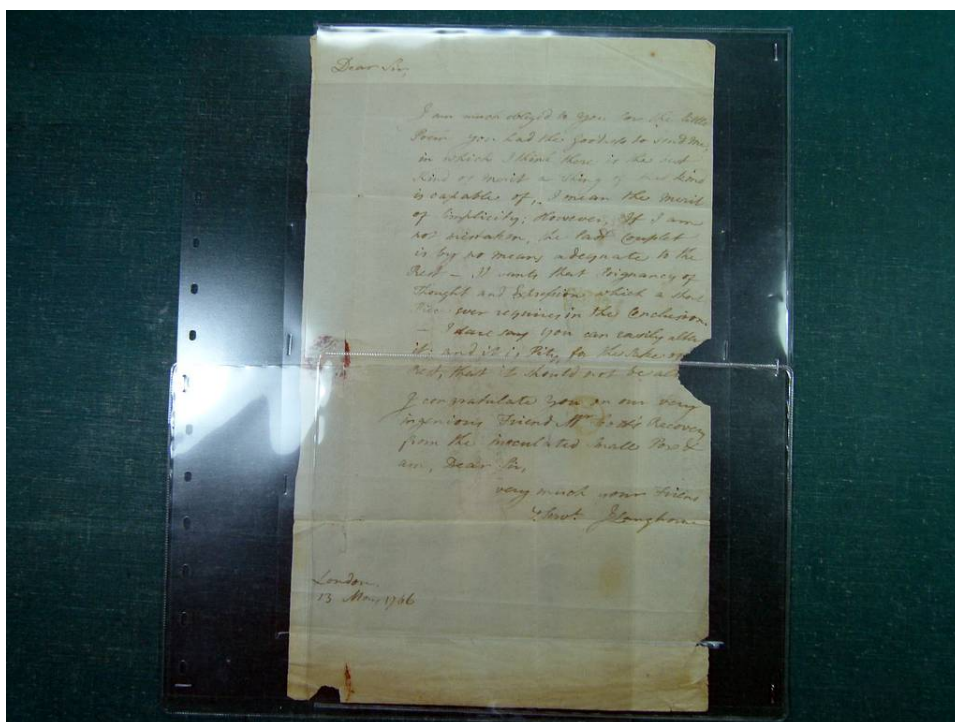 Dear Sir,
I am much obliged to you for the little
Poem you had the goodness to send me,
in which I think there is the best
kind of merit a thing of that kind
is capable of, I mean the merit
of Simplicity; However, If I am
not mistaken, the last Couplet
is by no means adequate to the
Rest — It wants that Poignancy of
Thought and Expression which a short
Piece ever requires in the Conclusion.
— I dare say you can easily alter
it: and it is Pity, for the sake of
Rest, that it should not be
I congratulate you on our very
ingenious Friend Mr Recovery
from the inoculated Small Pox &
am, Dear Sir,
very much your Friend
& Servt. J Langhorne
London.
13 May 1766